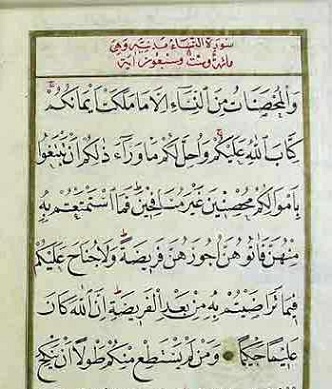 سورة النساء مدنية وهي
مائة وست وسبعون اية
وَالْمُحْصَنَاتُ مِنَ النِّسَاءِ اِلَّا مَا مَلَكَتْ اَيْمَانُكُمْ
كِتَابَ اللّٰهِ عَلَيْكُمْ وَاُحِلَّ لَكُمْ مَا وَرَاءَ ذٰلِكُمْ اَنْ تَبْتَغُوا
بِاَمْوَالِكُمْ مُحْصِنِينَ غَيْرَ مُسَافِحِينَ فَمَا اسْتَمْتَعْتُمْ بِهِ
مِنْهُنَّ فَاٰتُوهُنَّ اُجُورَهُنَّ فَرِيضَةً وَلَا جُنَاحَ عَلَيْكُمْ
فِيمَا تَرَاضَيْتُمْ بِهِ مِنْ بَعْدِ الْفَرِيضَةِ اِنَّ اللّٰهَ كَانَ
عَلِيمًا حَكِيمًا وَمَنْ لَمْ يَسْتَطِعْ مِنْكُمْ طَوْلًا اَنْ يَنْكِحَ